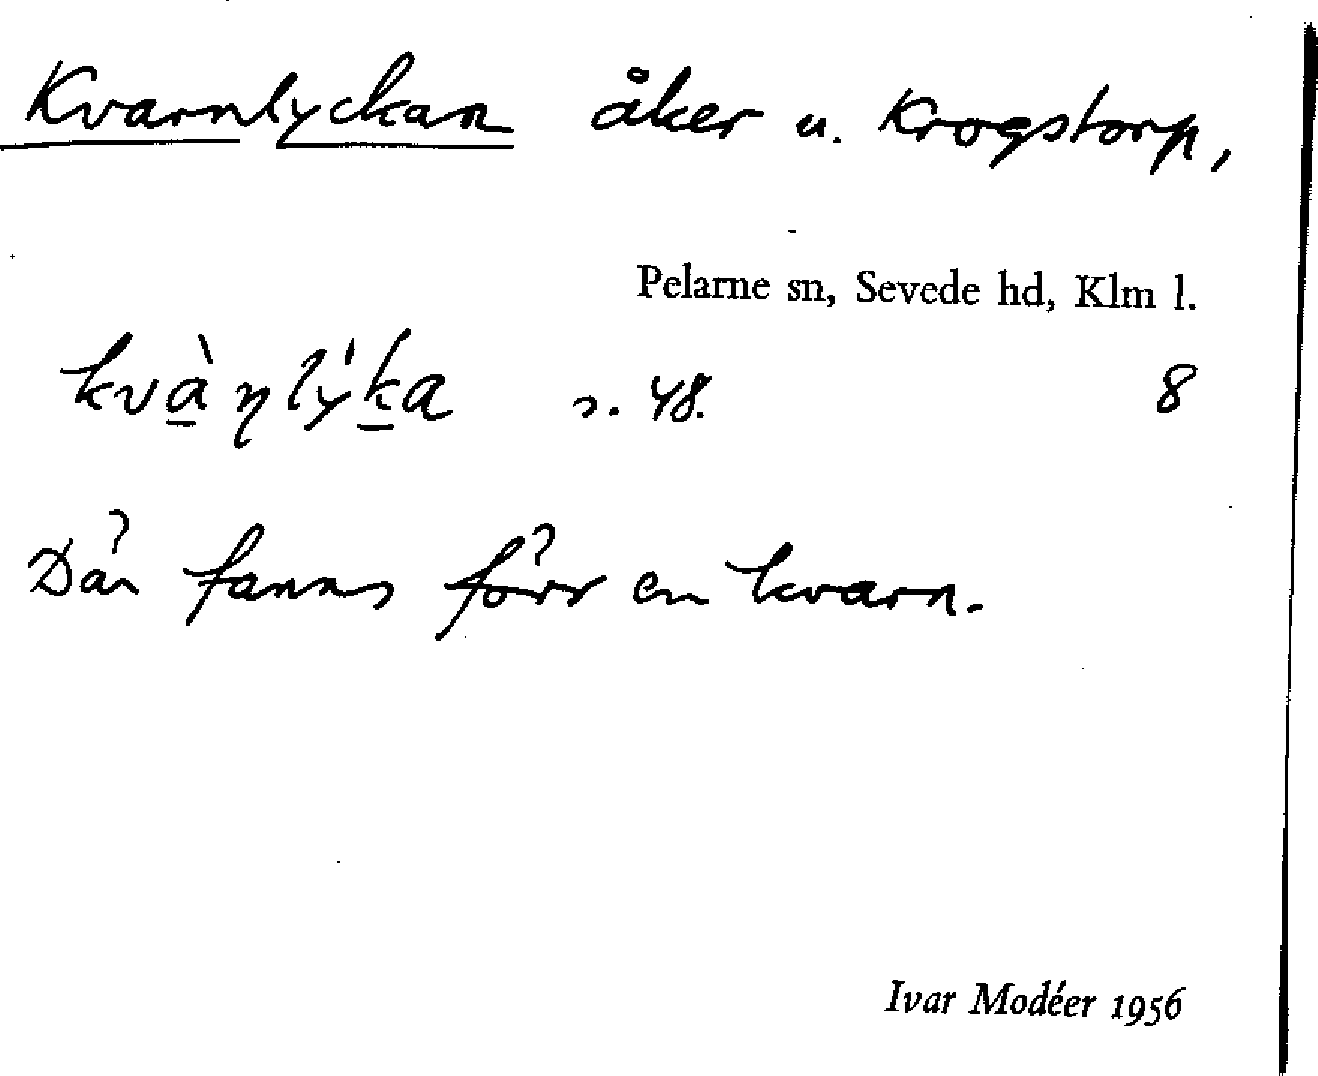 Kvarnlyckan åker u. Krogstorp,
Pelarne sn, Sevede hd, Klm l.
kvа̀ɳlýka s. 48. 8
Där fanns förr en kvarn.
Ivar Modéer 1956